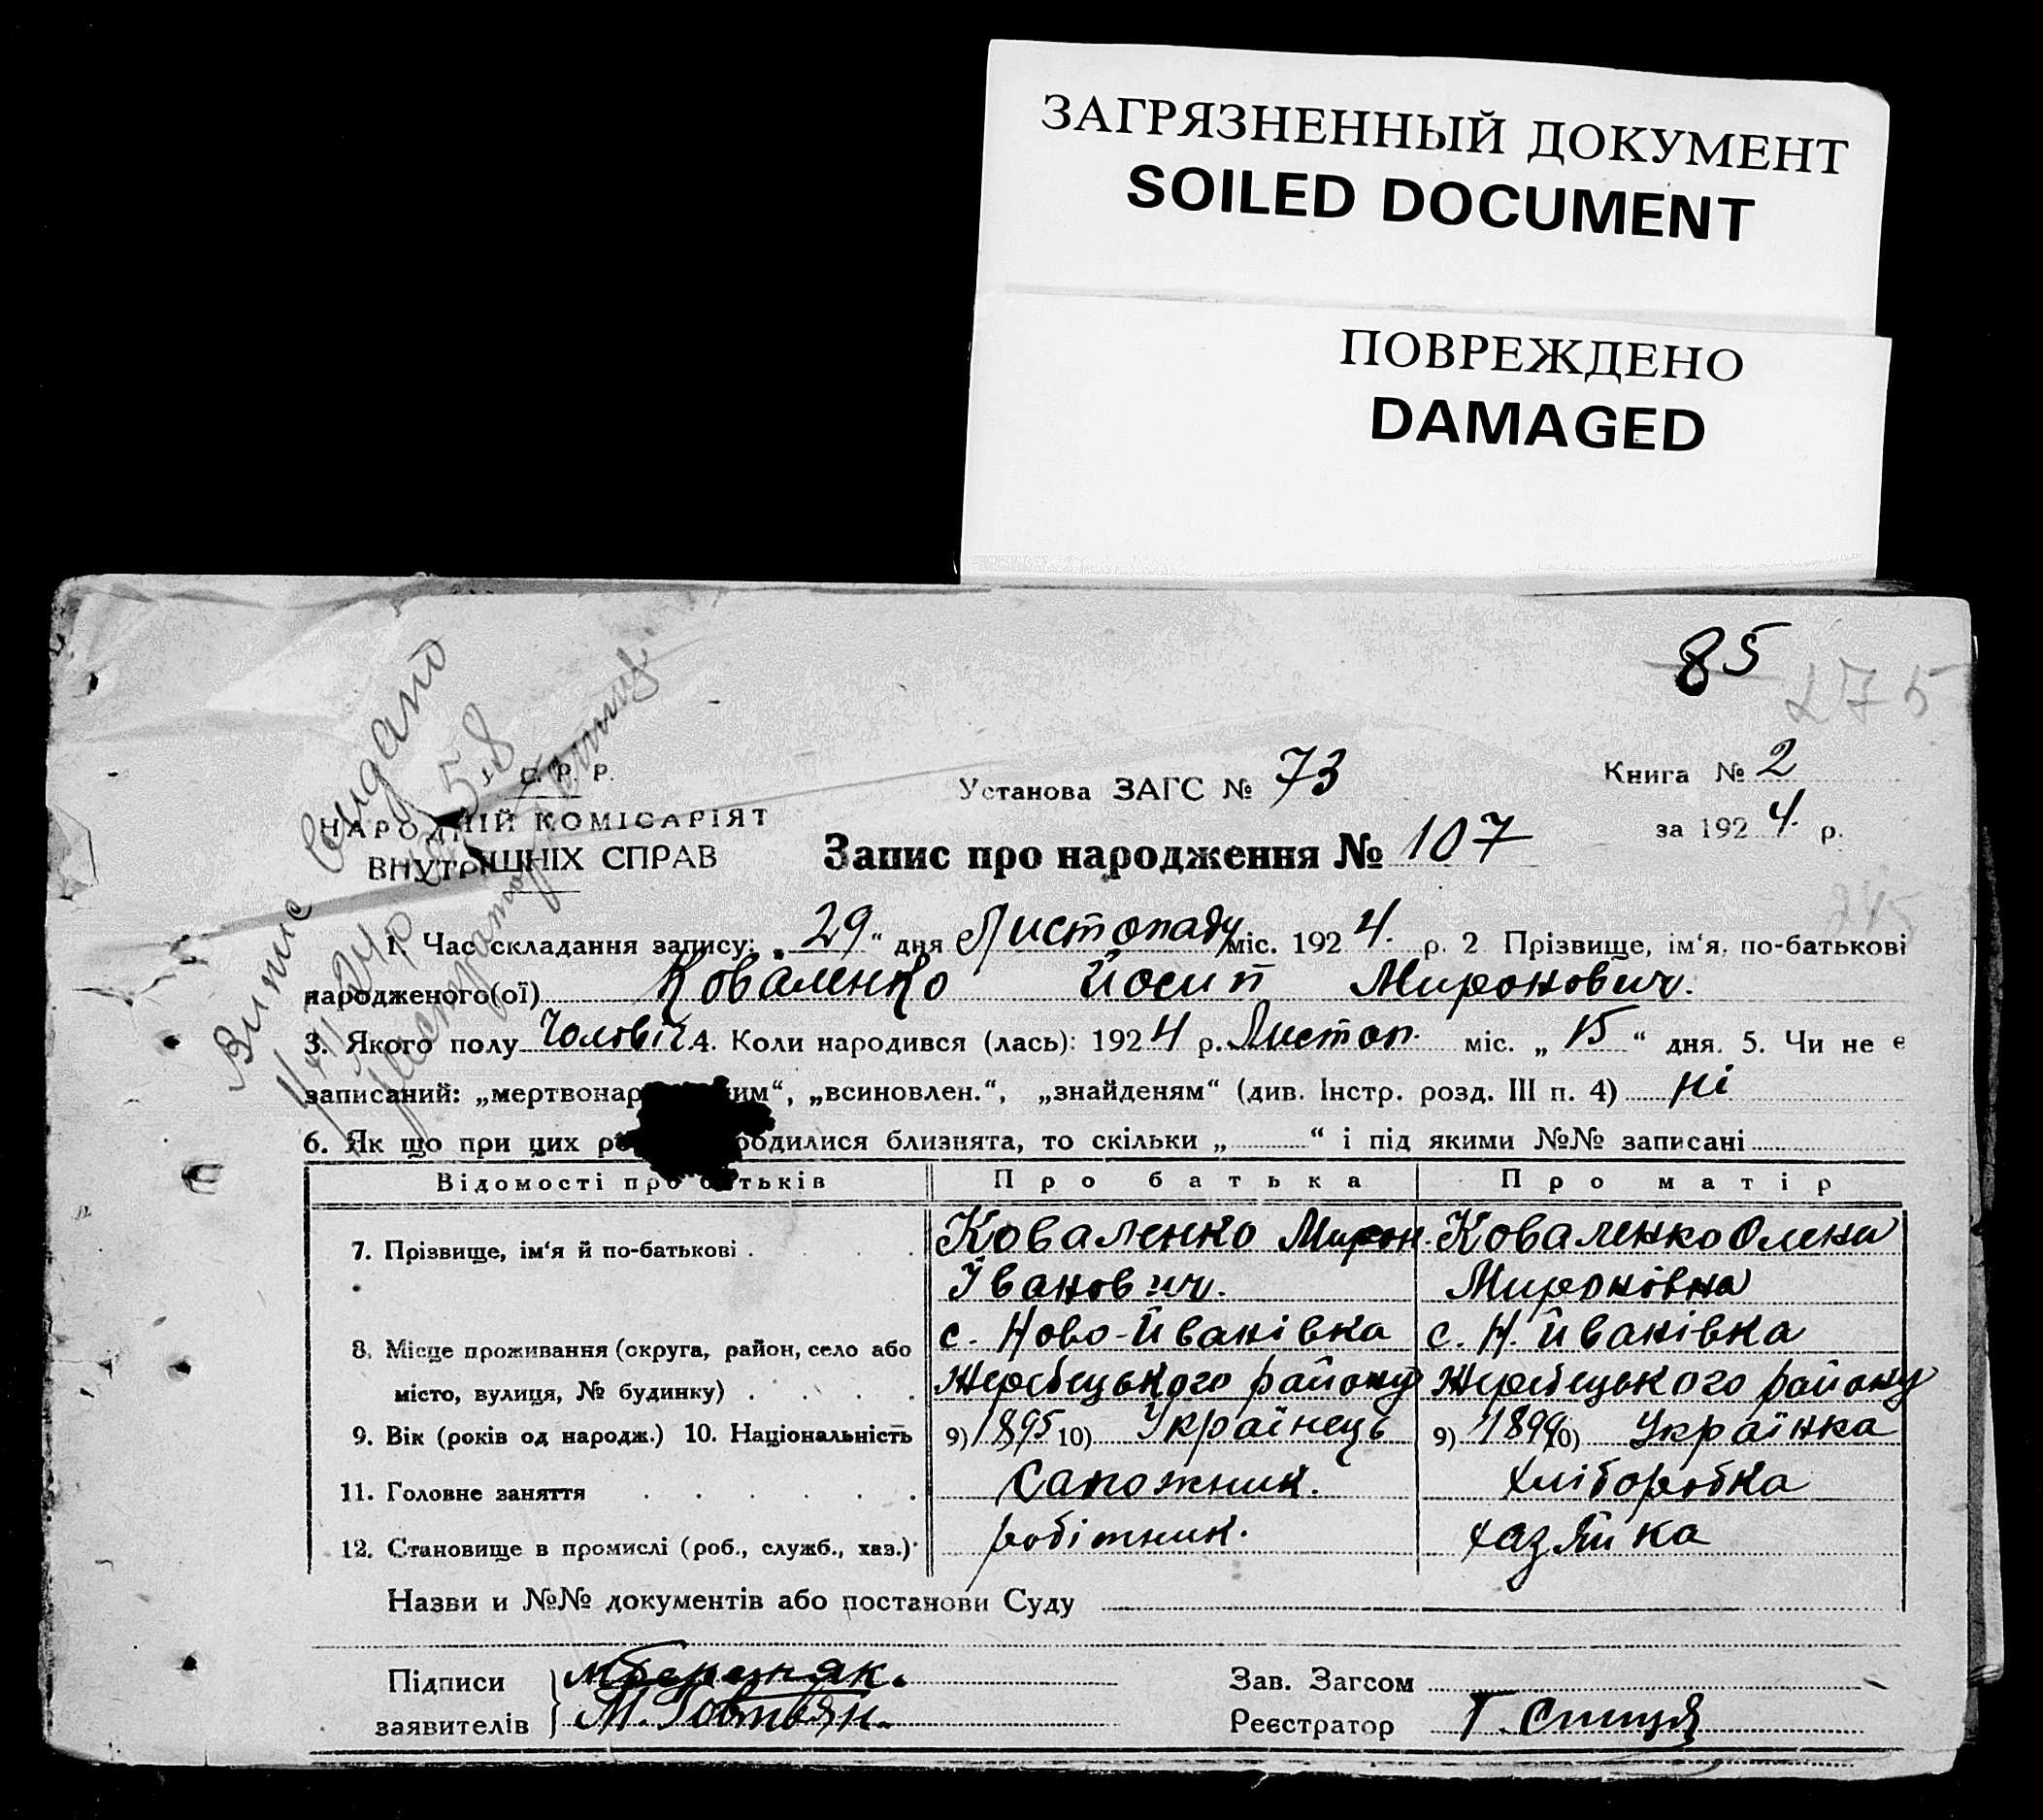 ЗАГРЯЗНЕННЫЙ ДОКУМЕНТ
SOILED DOCUMENT
ПОВРЕЖДЕНО
DAMAGED
85
275
Випис видано
С. Р. Р.
НАРОДНІЙ КОМІСАРІЯТ
ВНУТРІШНІХ СПРАВ
Установа ЗАГС № 73
Книга № 2
за 1924 р.
Запис про народження № 107
245
1. Час складання запису: „29“ дня Листопаду міс. 1924. р. 2 Прізвище, ім‘я, по-батькові
народженого(ої) Коваленко Йосип Миронович.
3. Якого полу Чоловіч. 4. Коли народився (лась): 1924 р. Листоп. міс. „15“ дня. 5. Чи не є
записаний: „мертвонар им“, „всиновлен.“, „знайденям“ (див. Інстр. розд. III п. 4) ні
6. Як що при цих родилися близнята, то скільки „ “ і під якими №№ записані
Відомості про батьків Про батька Про матір
7. Прізвище, ім‘я й по-батькові . Коваленко Мирон Коваленко Олена
Іванович. Миронівна
8. Місце проживання (округа, район, село або с. Ново-Йванівка с. Н. Йванівка
місто, вулиця, № будинку) . Жеребецького району Жеребецького району
9. Вік (років од народж.) 10. Національність 9) 1895 10) Українець 9) 1899 10) Українка
11. Головне заняття Сапожник. хліборобка
12. Становище в промислі (роб., служб., хаз.) робітник. хазяйка
Назви и №№ документів або постанови Суду
Підписи Зав. Загсом
заявителів М. Говтвян. Реєстратор Г. Спиця